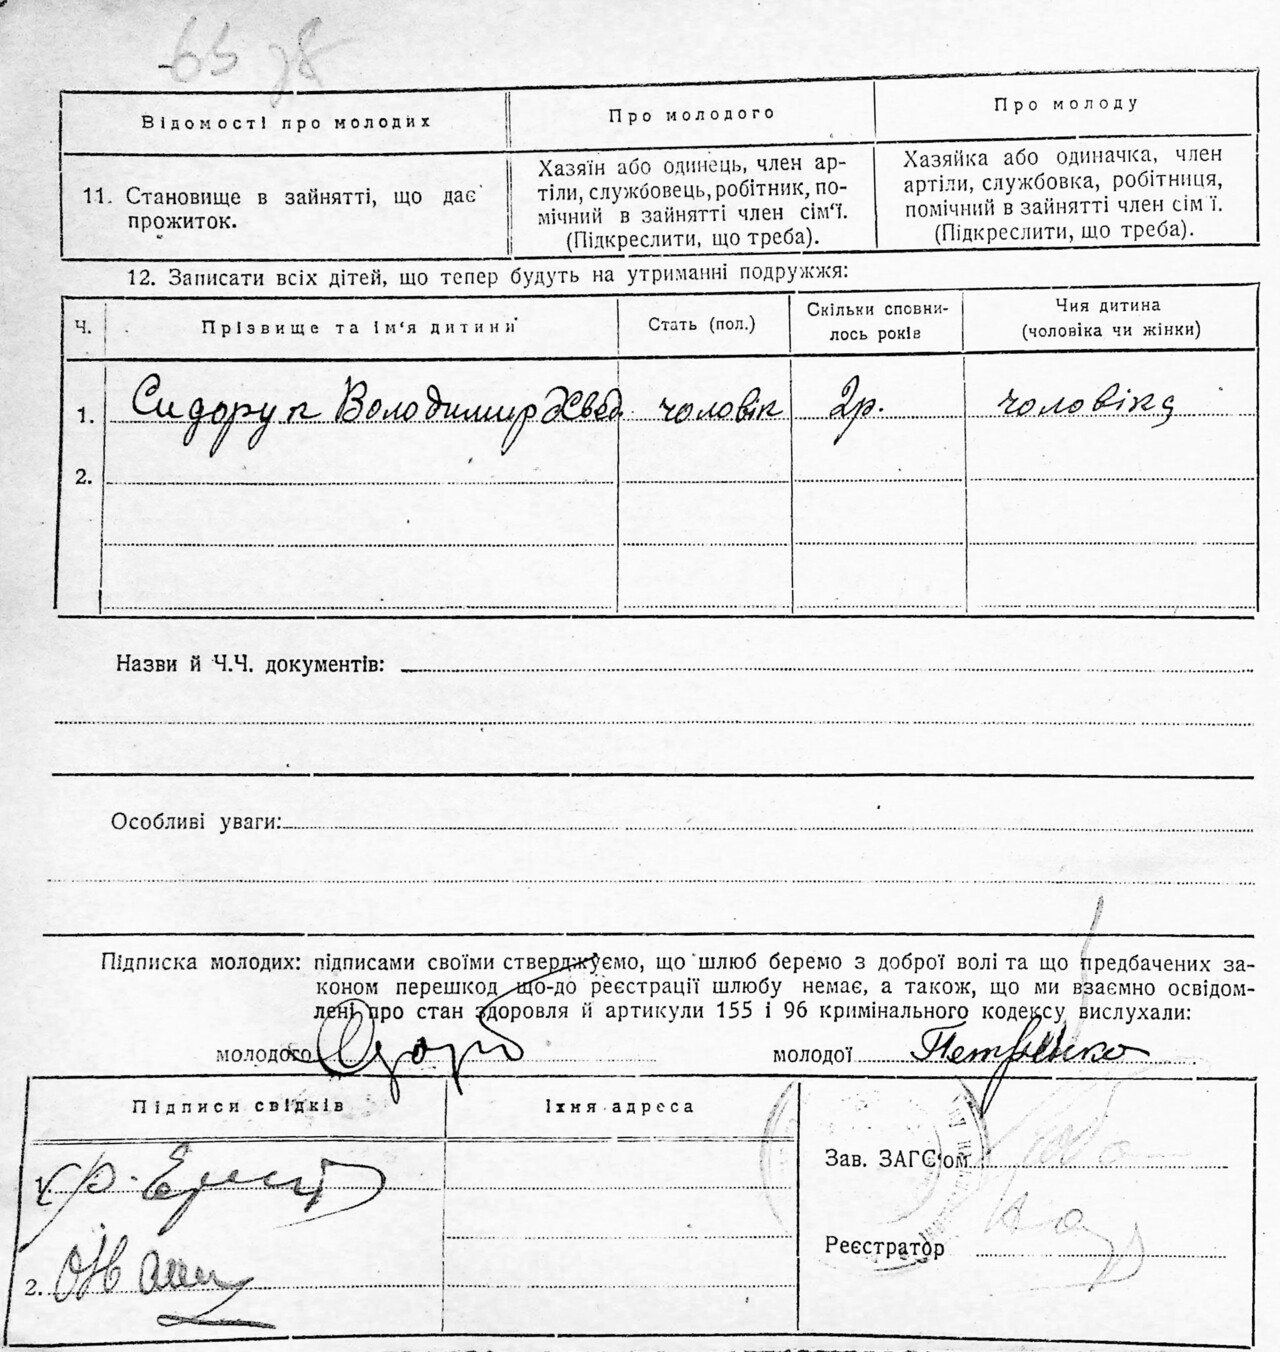 Відомості про молодих
Про молодого
Про молоду
11. Становище в зайнятті, що дає
прожиток.
Хазяїн або одинець, член ар-
тіли, службовець, робітник, по-
мічний в зайнятті член сім'ї.
(Підкреслити, що треба).
Хазяйка або одиначка, член
артіли, службовка, робітниця,
помічний в зайнятті член сім ї.
(Підкреслити, що треба).
12. Записати всіх дітей, що тепер будуть на утриманні подружжя:
Ч.
Прізвище та ім'я дитини
Стать (пол.)
Скільки сповни-
лось років
Чия дитина
(чоловіка чи жінки)
1. Сидорук Володимир Хвед. чоловік 2р. чоловіка
2.
Назви й Ч.Ч. документів:
Особливі уваги:
Підписка молодих: підписами своїми стверджуємо, що шлюб беремо з доброї волі та що предбачених за-
коном перешкод що-до реєстрації шлюбу немає, а також, що ми взаємно освідом-
лені про стан здоровля й артикули 155 і 96 кримінального кодексу вислухали:
молодого
молодої Петренко
Підписи свідків
Їхня адреса
1.
2.
Зав. ЗАГС'ом
Реєстратор